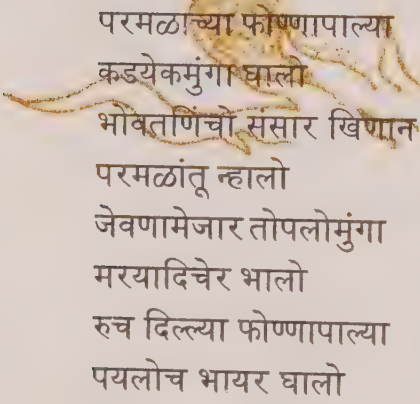 परमळाच्या फोण्णापाल्या
कडयेकमुंगा घालो
भोंवतणिंचो संसार खिणान
परमळांतू न्हालो
जेवणामेजार तोपलोमुंगा
मरयादिचेर भालो
रुच दिल्ल्या फोण्णापाल्या
पयलोच भायर घालो